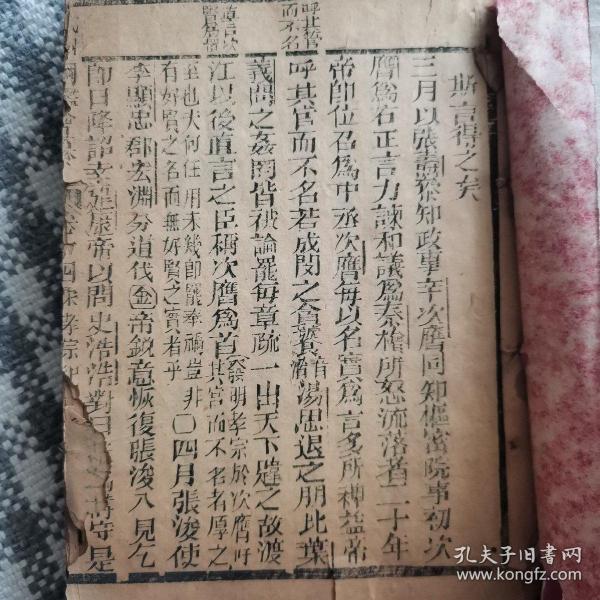 斯言得之矣
三月以張燾叅知政事辛次膺同知樞密院事初次
膺爲右正言力諫和議爲秦檜所怒流落者二十年
帝卽位召爲中丞次膺每以名實爲言多所裨益帝
呼其官而不名若成閔之貪饕湯思退之朋比葉
義問之姦罔皆被論罷每章疏一出天下韙之故渡
江以後直言之臣稱次膺爲首發明孝宗於次膺呼
其官而不名者厚之
至也夫何任用未幾卽罷奉祠豈非
有好賢之名而無好賢之實者乎
〇四月張浚使
李顯忠邵宏淵分道伐金帝銳意恢復張浚入見乞
卽日降詔幸建康帝以問史浩浩對曰
是
呼其官
而不名
直言次
膺居首
孔夫子旧书网
www.kongfz.com